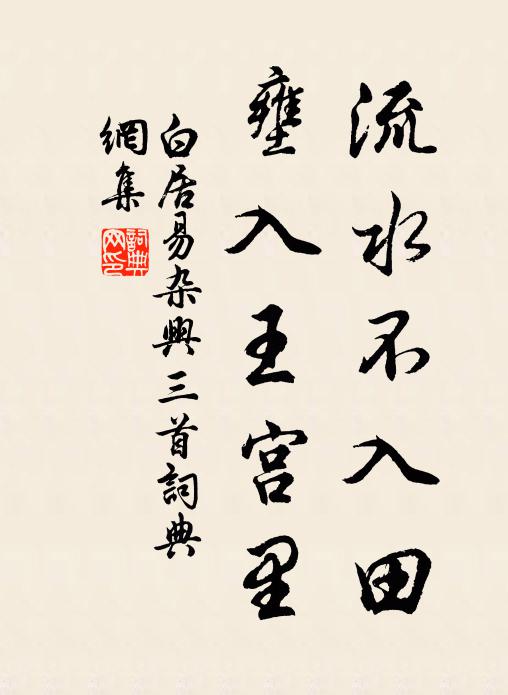 流水不入田
壅入王宫里
白居易杂興三首詞典
網集
詞典网印